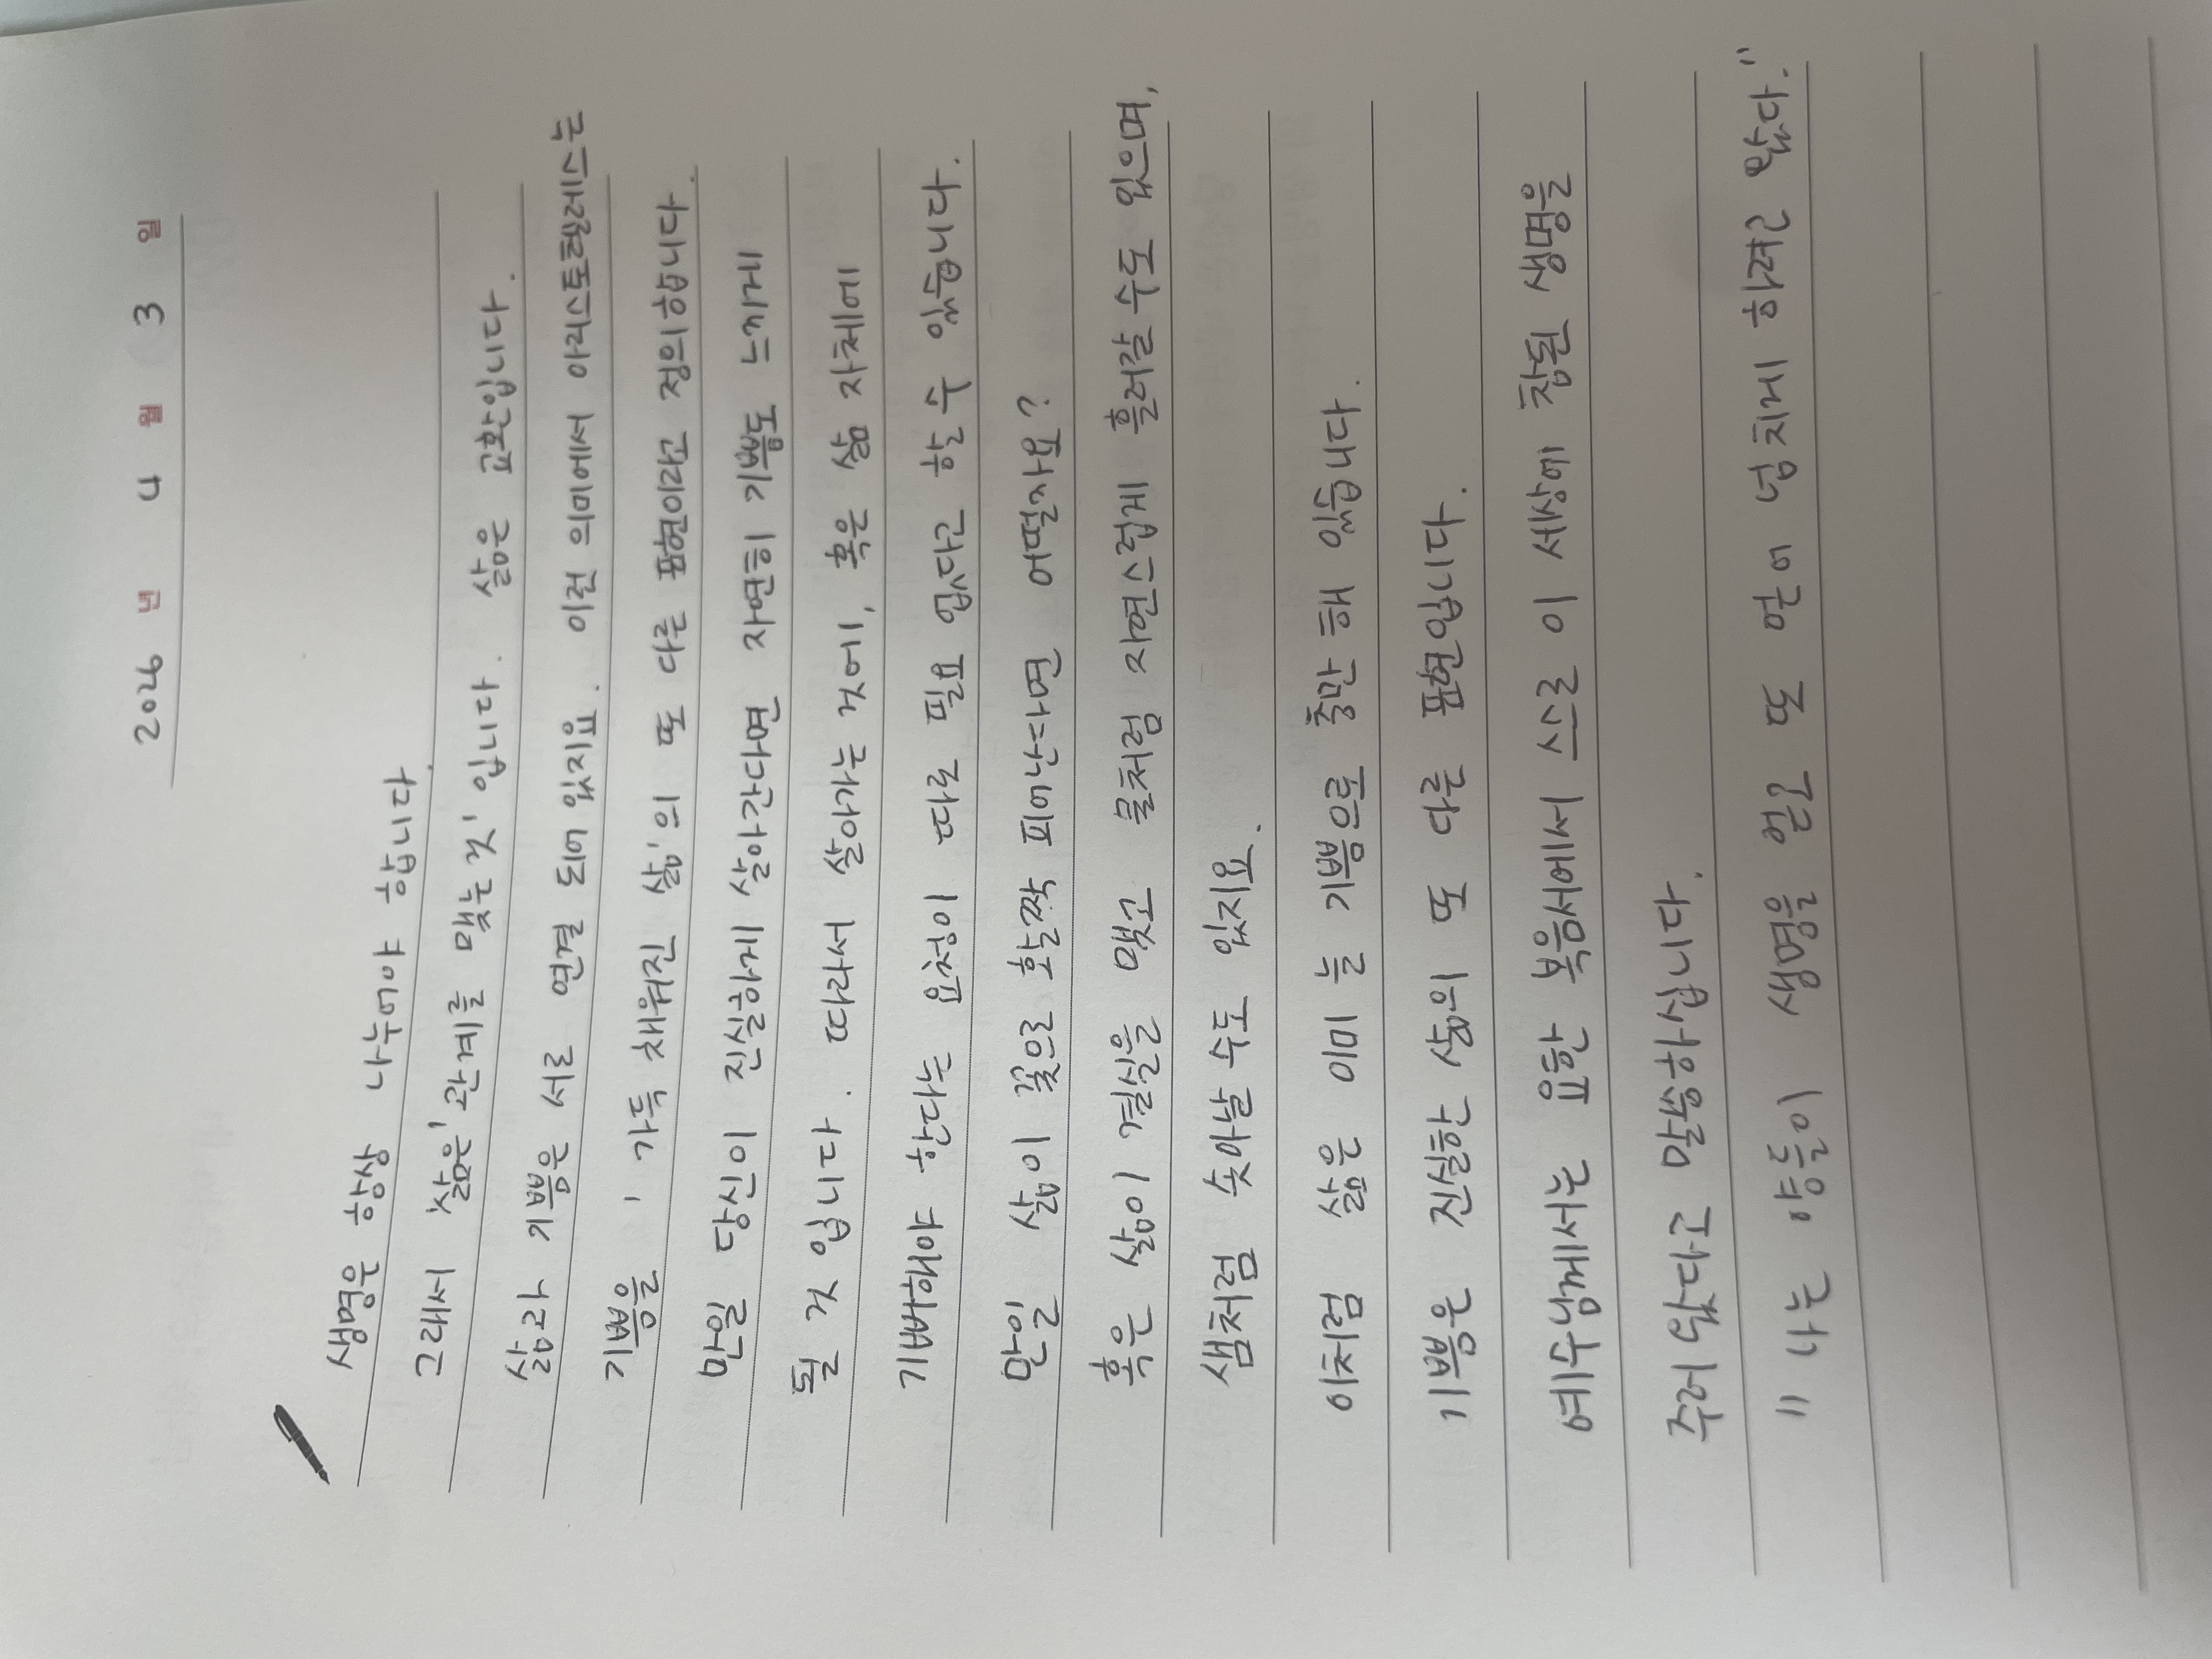 2026 년 4 월 3 일
생명은 항상 나누어야 합니다.
그래서 '삶은', 관계를 맺는 것' 입니다. 삶은 교환입니다.
삶과 기쁨은 서로 연결 되어 있지요. 이런 의미에서 아리스토텔레스는
기쁨을 ' 가득 채워진 삶'의 또 다른 표현이라고 정의합니다.
만일 당신이 진실하게 살아간다면 자연히 기쁨도 느끼게
될 것 입니다. 따라서 살아가는 것에, 혹은 삶 자체에
기뻐해야 한다는 요청이 따로 필요 없다고 할 수 있습니다.
만일 삶이 꽃으로 활짝 피어난다면 어떨까요?
혹은 삶이 결실을 맺고 물처럼 자연스럽게 흘러갈 수도 있으며,
샘처럼 솟아날 수도 있지요.
이처럼 삶은 이미 늘 기쁨으로 충만 해 있습니다.
기쁨은 진실한 삶의 또 다른 표현입니다.
예수님께서는 요한 복음서에서 스스로 이 세상에 참된 생명을
주러 왔다고 말씀하십니다.
"나는 양들이 생명을 얻고 또 얻어 넘치게 하려고 왔다."